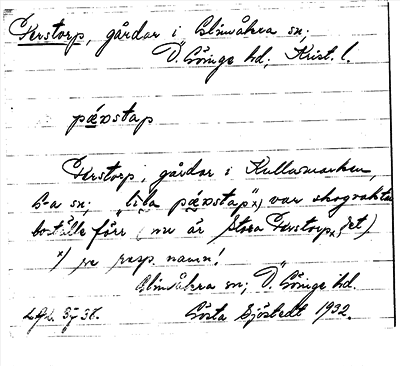 Perstorp, gårdar i Glimåkra sn;
Ö. Göinge hd; Krist. l.
pæxstap
Perstorp, gårdar i Kullasmarken,
G-a sn; "lila pæxstap" x) var skogvaktar
boställe förr (nu är Stora Perstorp x) det)
x) se resp. namn!
Glimåkra sn; Ö. Göinge hd.
Gösta Sjöstedt 1932.